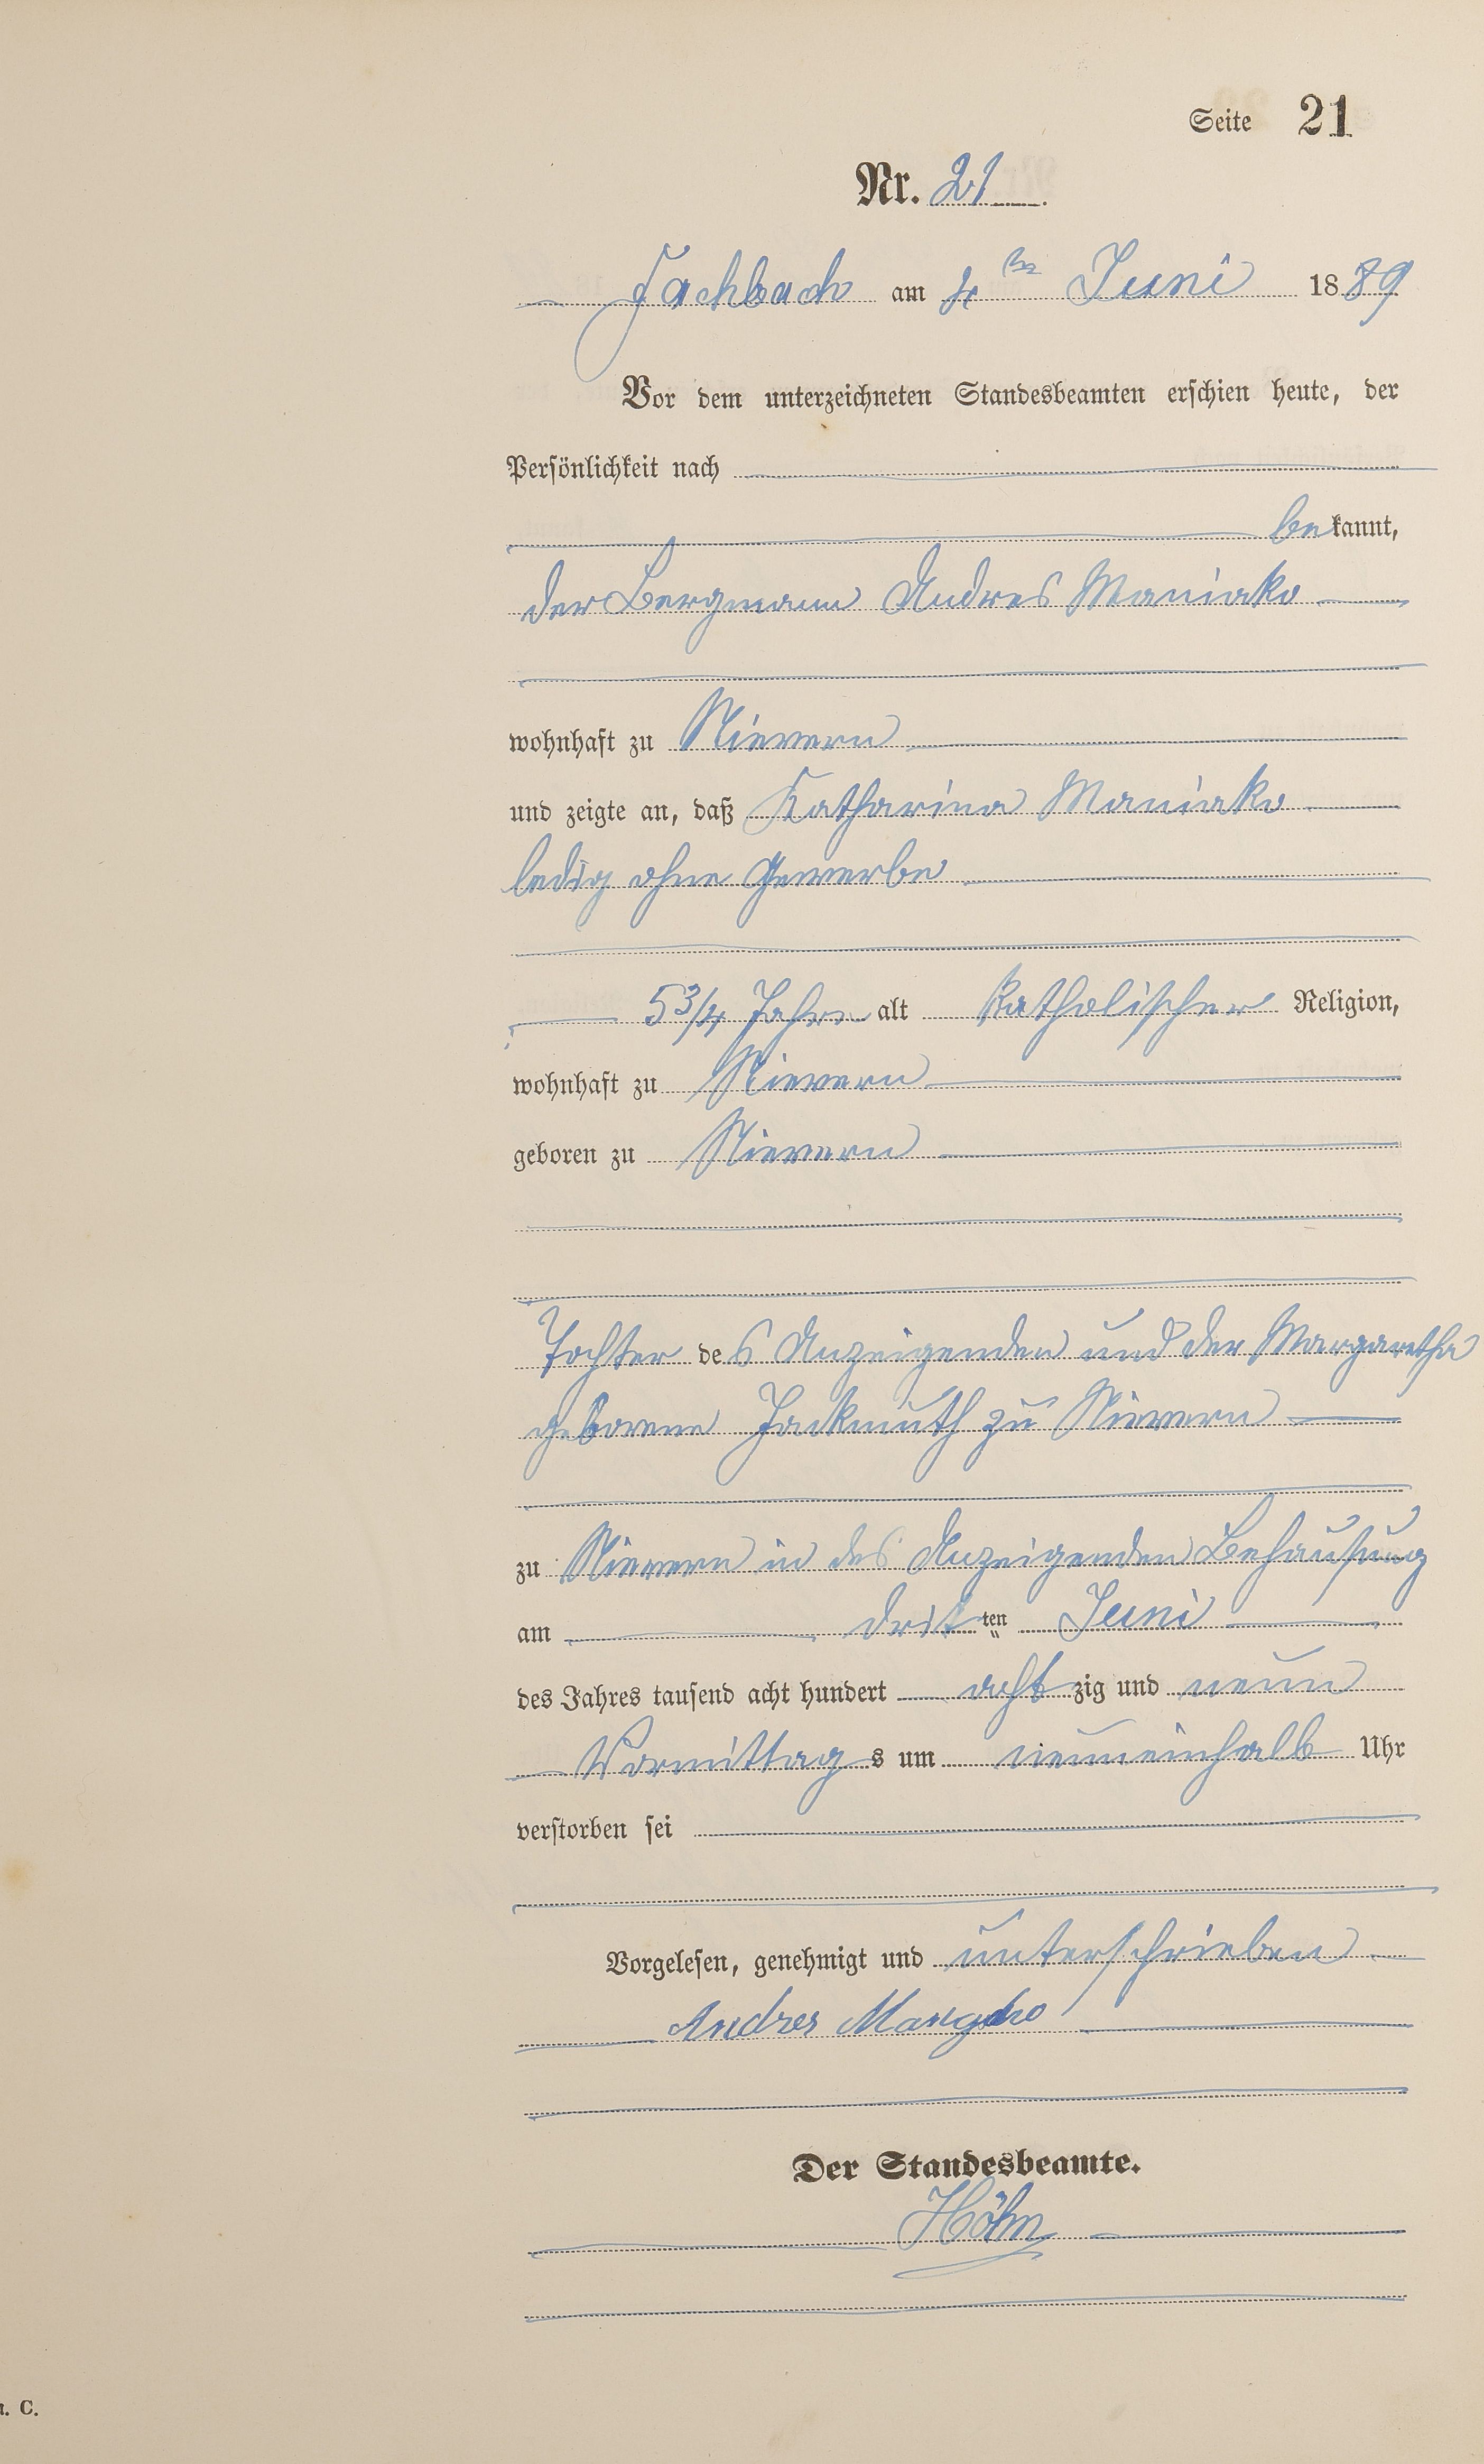 Seite 21
Nr. 21
Fachbach am 4ten Juni 1889
Vor dem unterzeichneten Standesbeamten erschien heute, der
Persönlichkeit nach
bekannt,
der Bergmann Andres Maniako
wohnhaft zu Nievern
und zeigte an, daß Katharina Maniako
ledig ohne Gewerbe
5 3/4 Jahre alt katholischer Religion,
wohnhaft zu Nievern
geboren zu Nievern
Tochter des Anzeigenden und der Margaretha
geborene Jackmuth zu Nievern
zu Nievern in des Anzeigenden Behausung
am dritten Juni
des Jahres tausend acht hundert achtzig und neun
Vormittags um neuneinhalb Uhr
verstorben sei
Vorgelesen, genehmigt und unterschrieben
Andres
Der Standesbeamte.
Höhn
C.